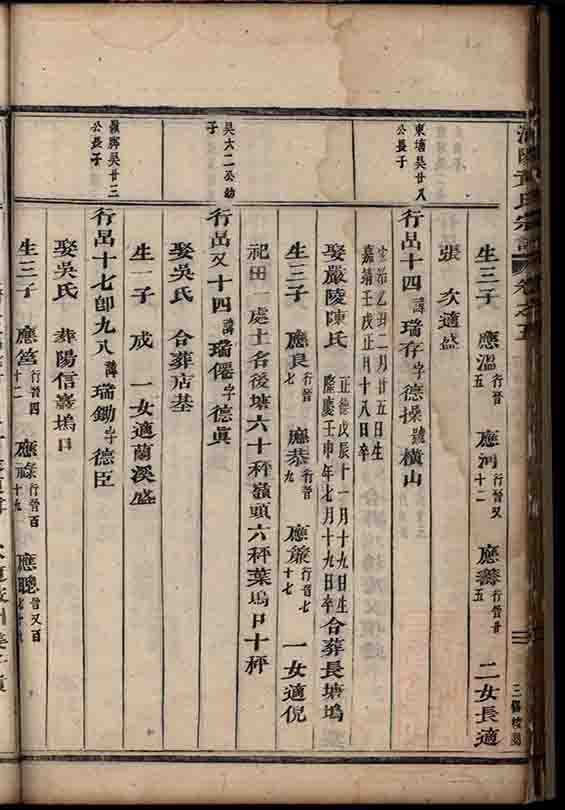 生三子 應溫行晉五 應河行晉又十二 應壽行晉廿五 二女長適
張 次適盛
東塘吳廿八公長子
行昌十四諱瑞存字德操號橫山
弘治乙丑二月廿五日生
嘉靖壬戌正月十八日卒
娶嚴陵陳氏 正德戊辰十一月十九日生 隆慶壬申年七月十九日卒 合葬長塘塢
生三子 應良行晉七 應恭行晉九 應 行晉七十七 一女適倪
祀田一處土名後塘六十秤嶺頭六秤葉塢口十秤
吳大二公幼子
行昌又十四諱瑞僊字德真
娶吳氏 合葬店基
生一子 成 一女適蘭溪盛
嶺腳吳廿三公長子
行昌十七卽九八諱瑞鋤字德臣
娶吳氏 葬陽信 塢口
生三子 應筥行晉四十二 應祿行晉百十九 應聰晉又百
氏宗譜 卷之五